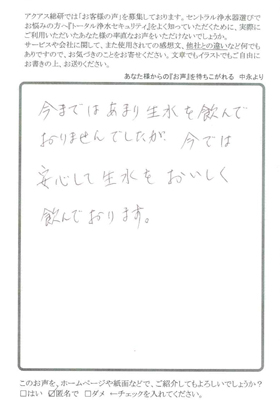 アクアス総研では「お客様の声」を募集しております。セントラル浄水器選びで
お悩みの方へ『トータル浄水セキュリティ』をよく知っていただくために、実際に
ご利用いただいたあなた様の率直なお声をいただけないでしょうか。
サービスや会社に関して、また使用されての感想文、他社との違いなど何でも
ありますので、お気づきのことをお寄せください。文章でもイラストでもご自由に
お書きの上、お送りください。
あなた様からの『お声』を待ちこがれる 中永より
今まではあまり生水を飲んで
おりませんでしたが、今では
安心して生水をおいしく
飲んでおります。
このお声を、ホームページや紙面などで、ご紹介してもよろしいでしょうか?
□はい ☑匿名で □ダメ ←チェックを入れてください。